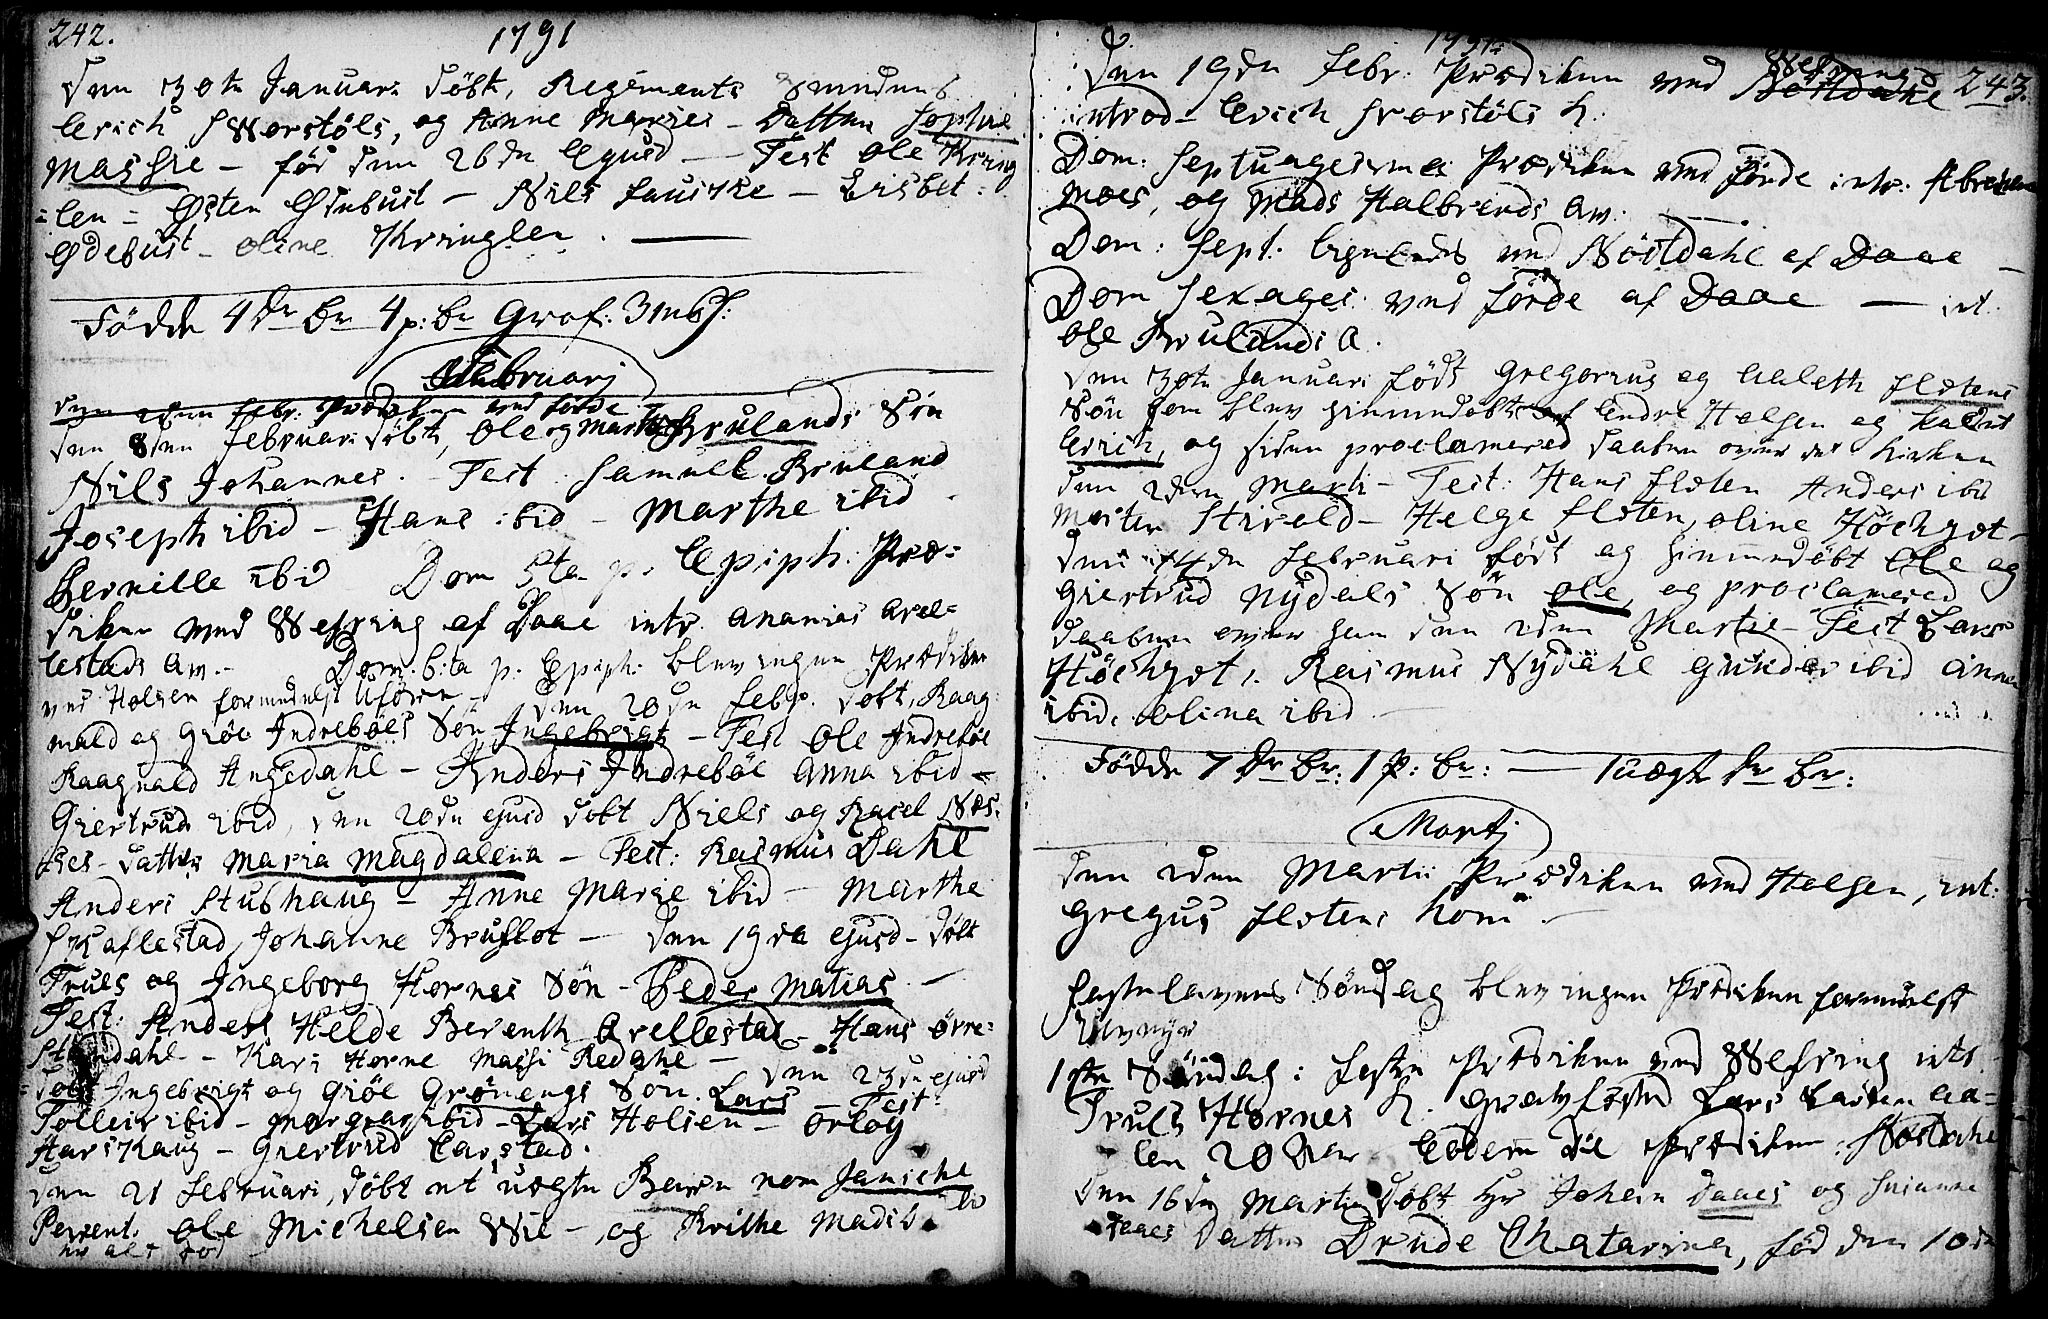 242.
1791
Den 30te Januari döbt, Regements Smedens
Erich Sværstöls, og Anne Maries - Datter Sophie
Massie - föd den 26de Ejusd - Test Ole Kring
=len = Östen Ødebust - Nils Lauiske - Lisbet
Ødebust - Oline Kringlen.
Födde 4 Dr Br 4 p: Br Graf: 3
Februarj
den 2den Febr: Prædiken ved Förde
den 8den Februari döbt, Ole og Marthe Brulands Sön
Nils Johannes. - Test Samuel Bruland
Joseph ibid - Hans ibid - Marthe ibid
Pernille ibid Dom 5ta p. Epiph: Præ=
diken ved Wefring af Daae intr. Ananias Arel=
lestads av. - Dom. 6:ta p. Epiph: blev ingen Prædiken
ved Holsen formedelst Uföre - den 20de Febr. döbt, Raag
nald og Giöe Indreböes Sön Ingebrigt - Test Ole Indreböe
Raagnald Angedahl - Anders Indreböe Anna ibid -
Giertrud ibid, den 20de ejusd döbt Niels og Racel Næs=
ses - Datter Maria Magdalena - Test: Rasmus Dahl
Anders Stubhaug - Anne Marie ibid - Marthe
Johanne Bruflot - den 19de ejusd - döbt
Trues og Ingeborg Hornes Sön - Peder Matias -
Test: Anders Helde Berenth Arellestad - Hans övre=
Stöndahl - Kari Horne Massi Redahl - den 23de ejusd
=döbt Ingebrigt og Giöe Grönengs Sön Lars - Test
Tolleir ibid - Margreta ibid - Lars Holsen - Orlög
Harskaug - Giertrud Carstad.
den 21 Februari, döbt et uægte Barn nom Janiche
Parent. Ole Michelsen Wie - og Brithe Madsd.
1791.
243.
Den 19de Febr: Prædiken ved Wefring
introd - Erich Sværstöls h.
Dom: Septuagesimæ Prædiken ved Förde intr. Abraham
Moes, og Mads Halbrends av.
Dom: Sept. ved Nöstdahl af Daae -
Dom Sexages: ved Förde af Daae - int.
Ole Brulands a.
den 30te Januari födt Gregorius og Aaleth Flotens
Sön som blev hiemedöbt af Endre Holsen og kaldet
Erich, og siden proclamered daaben over det kirken
den 2den Marti - Test: Hans Floten Anders ibid
Morten - Helge Floten, Oline Höchgot -
den 14de Februari födt og hiemmedöbt Ole og
Giertrud Nydals Sön Ole, og proclamered
daaben over ham den 2den Martie - Test Lars
Höchgot, Rasmus Nydahl Gunder ibid Anna
ibid. Olina ibid
Födde 7 Dr Br: 1 P: Br: - 1 uægte Dr Br:
Martj
Den 2den Martii Prædiken ved Holsen, int:
Gregus Flotens kone -
Fastelavens Söndag blev ingen Prædiken formedelst
Uveyr
1ste Söndag i Faste Prædiken ved Wefring intr.
Truls Hornes h.
Nöstdahl
Den 16de Martii döbt Hr Johan Daaes og Susanna
Daaes Datter Drude Chatarina, föd den 10de